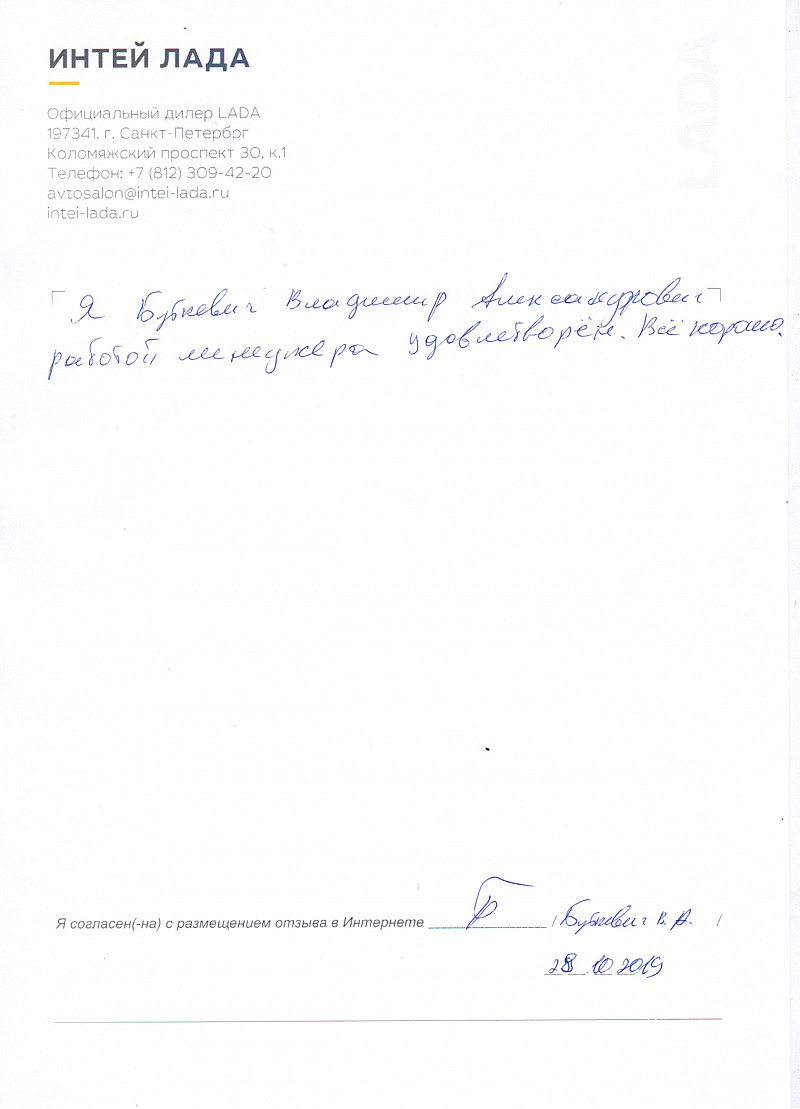 ИНТЕЙ ЛАДА
LADA
Официальный дилер LADA
197341, г. Санкт-Петербрг
Коломяжский проспект 30, к.1
Телефон: +7 (812) 309-42-20
avtosalon@intei-lada.ru
intei-lada.ru
Я Буткевич Владимир Александрович
работой менеджера удовлетворён. Всё хорошо.
Я согласен(-на) с размещением отзыва в Интернете / Буткевич В.А. /
28.10 2019